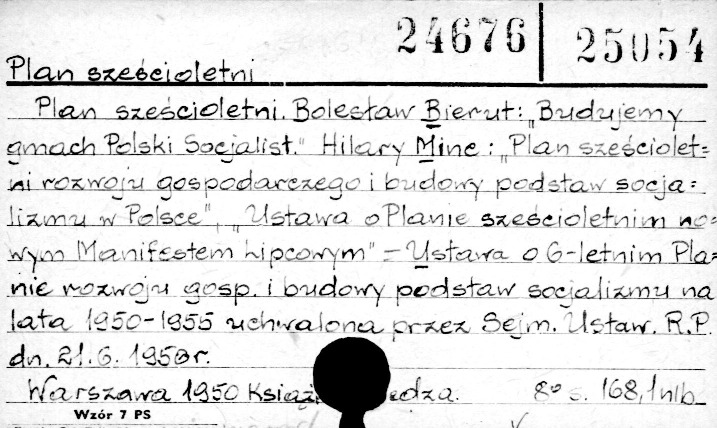 24676 25054
Plan sześcioletni
Plan sześcioletni. Bolesław Bierut: „Budujemy
gmach Polski Socjalist." Hilary Minc: „Plan sześciolet=
ni rozwoju gospodarczego i budowy podstaw socja=
lizmu w Polsce", „Ustawa o Planie sześcioletnim no=
wym Manifestem Lipcowym" - Ustawa o 6-letnim Pla=
nie rozwoju gosp. i budowy podstaw socjalizmu na
lata 1950-1955 uchwalona przez Sejm. Ustaw. R.P.
dn. 21.6. 1950r.
Warszawa 1950 Książ edza. 8° s. 168,1nlb
Wzór 7 PS